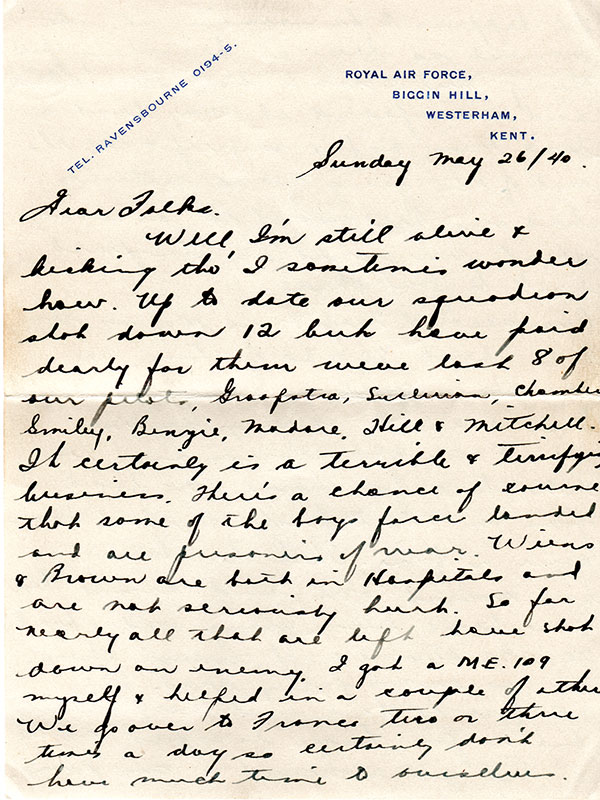 TEL. RAVENSBOURNE 0194-5.
ROYAL AIR FORCE,
BIGGIN HILL,
WESTERHAM,
KENT.
Sunday May 26/40.
Dear Folks.
Well, I'm still alive &
kicking tho' I sometimes wonder
how. Up to date our squadron
shot down 12 but have paid
dearly for them weve lost 8 of
our pilots, Graafstra, Sullivan, Chamber
Smiley, Benzie, Madore, Hill & Mitchell.
It certainly is a terrible & terrifyin
business. There's a chance of course
that some of the boys force landed
and are prisoners of war. Wiens
& Brown are both in Hospitals and
are not seriously hurt. So far
nearly all that are left have shot
down an enemy. I got a ME.109
myself & helped in a couple of other
We go over to France two or three
times a day so certainly don't
have much time to ourselves.